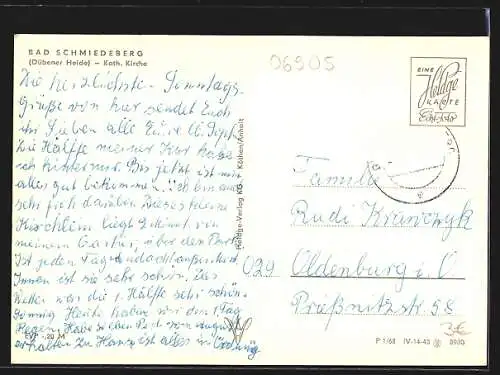 BAD SCHMIEDEBERG
(Dübener Heide) – Kath. Kirche
06905
Die herzlichste Sonntags-
grüße von hier sendet Euch
ihr Lieben alle Eure
Die Hälfte meiner Kur habe
ich hinter mir. Bis jetzt ist mir
alles gut bekommen, ich bin auch
sehr froh darüber. Dieses kleine
Kirchlein liegt 2 Minut. von
meinem Quartier, über den Park
Ist jeden Tag
Innen ist sie sehr schön. Das
Wetter war die 1. Hälfte sehr schön.
Sonnig Heute haben wir den 1 Tag
Regen. Habe
erhalten Zu Hause ist alles in Ordnung
EVP -,20 M
Heldge-Verlag KG. Köthen/Anhalt
EINE
Heldge
KARTE
Echt Foto
Familie
Rudi Krawczyk
029 Oldenburg i. O.
Prießnitzstr. 58
3€
P 1/68 IV-14-43 3930